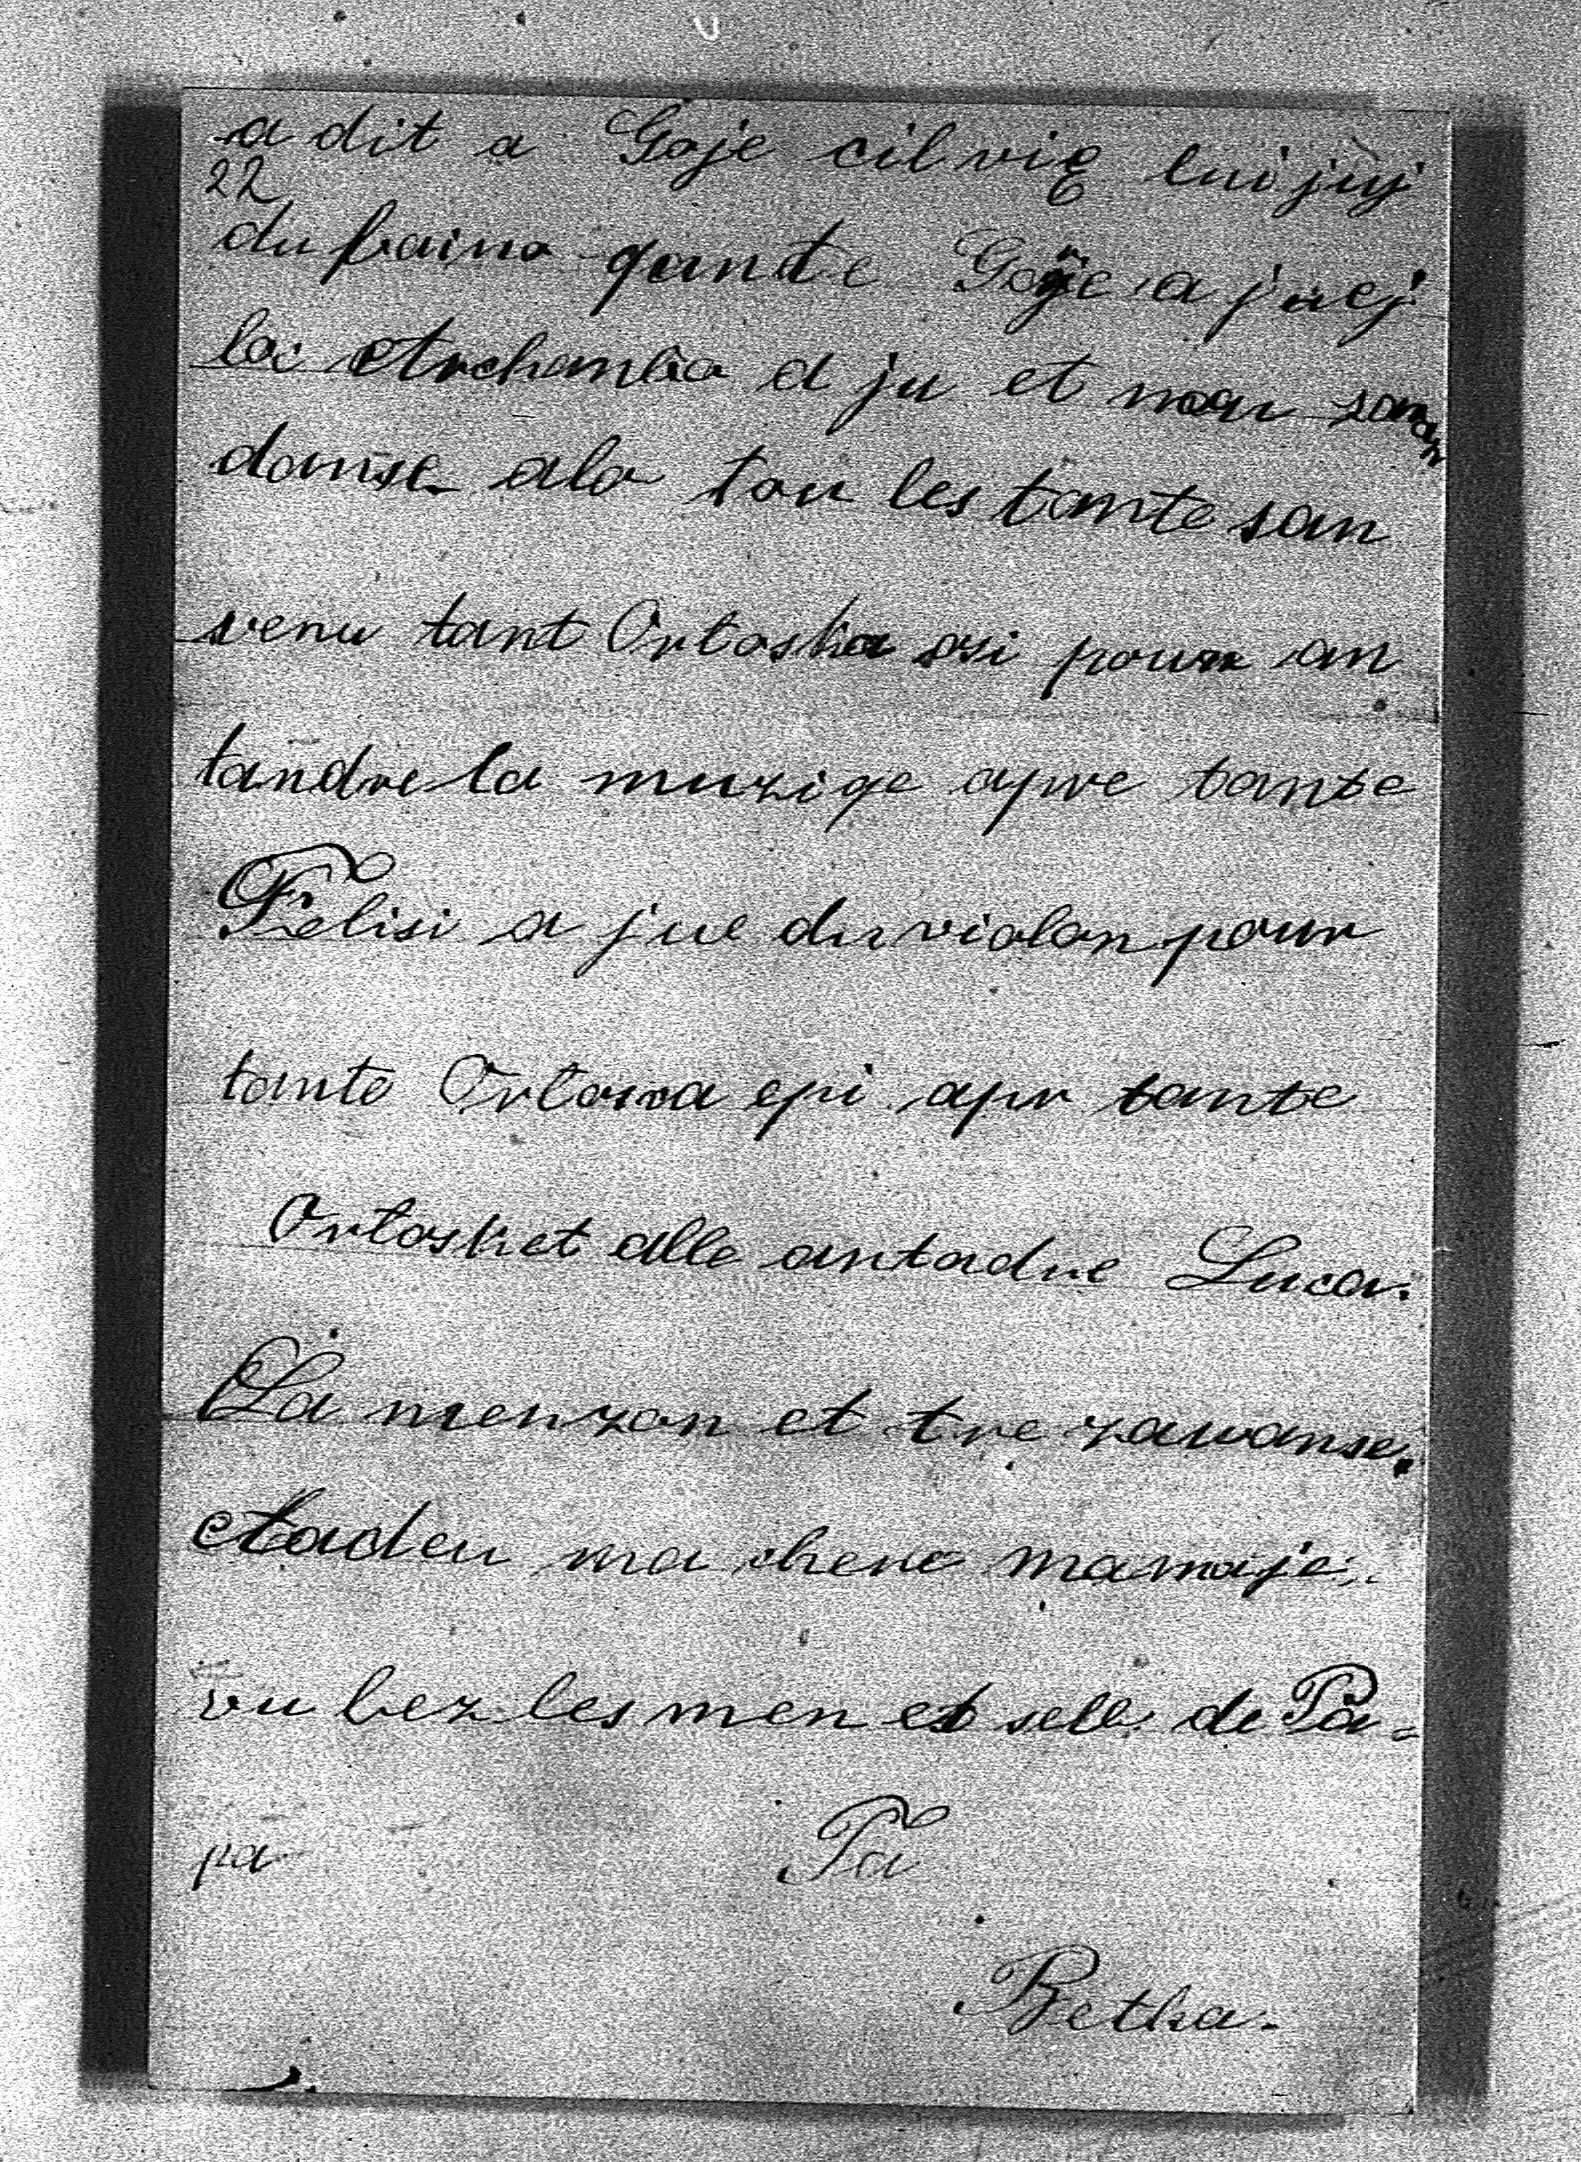 a dit a Goje cilvię lui juj
22
du piano qante Goje a juej
la Archanka d ju et nou san
danse ala tou les tante san
venu tant Ortoska osi pour an
tandre la muzige apre tante
Felisi a jue du violon pour
tante Ortosca epi apr tante
Ortosket alle antadre Luca.
La menzon et tre zavanse.
etadeu ma chere mamaje.
vu bez les men et selle de Pa=
pa Ta
Betka.